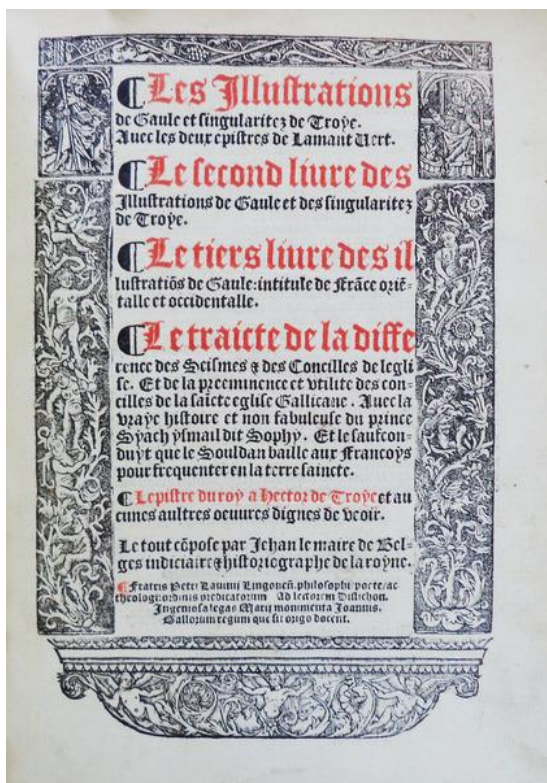 ¶Les Illustrations
de Gaule et singularitez de Troye.
Auec les deux epistres de Lamant Uert.
¶Le second liure des
Illustrations de Gaule et des singularitez
de Troye.
¶Le tiers liure des il
lustratiōs de Gaule: intitule de Frāce oriē-
talle et occidentalle.
¶Le traicte de la diffe
rence des Scismes ⁊ des Concilles de legli
se. Et de la preeminence et vtilite des con-
cilles de la saīcte eglise Gallicane. Auec la
vraye histoire et non fabuleuse du prince
Syach ysmail dit Sophy. Et le saufcon-
duyt que le Souldan baille aux Francoys
pour frequenter en la terre saincte.
¶Lepistre du roy a Hector de Troye et au
cunes aultres oeuures dignes de veoir.
Le tout cōpose par Jehan le maire de Bel-
ges indiciaire ⁊ historiographe de la royne.
¶Fratris Petri Lauinij Lingoneñ. philosophi: poete/ac
theologi: ordinis predicatorum Ad lectorem Distichon.
Ingeniosa legas Marij monumenta Joannis.
Gallorum regum que sit origo docent.